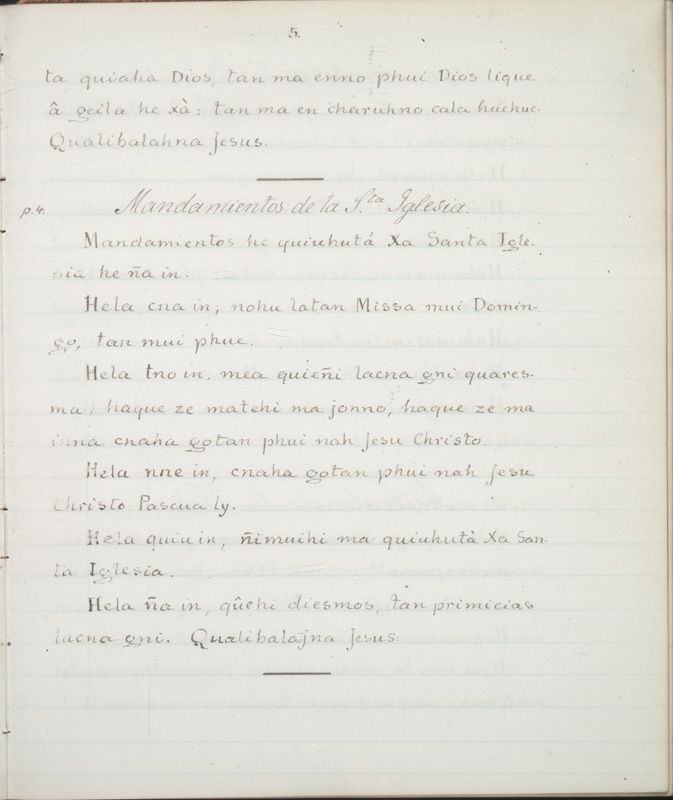 5.
ta quiaha Dios, tan ma enno phui Dios lique
â geila he xà: tan ma en charuhno cala huehue.
Qualibalahna Jesus.
p.4. Mandamientos de la S.ta Iglesia.
Mandamientos he quiuhutá Xa Santa Igle-
sia he ña in.
Hela cna in, nohu latan Missa mui Domin-
go, tan mui phue.
Hela tno in, mea quieñi lacna gni quares-
ma, haque ze matehi ma jonno, haque ze ma
inna cnaha gotan phui nah Jesu Christo.
Hela nne in, cnaha gotan phui nah Jesu
Christo Pascua ly.
Hela quiu in, ñimuihi ma quiuhutà Xa San-
ta Iglesia.
Hela ña in, qûehi diesmos, tan primicias
lacna gni. Qualibalajna Jesus.